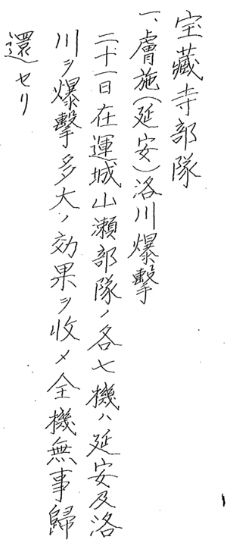 宝藏寺部隊
一、膚施(延安)洛川爆擊
二十一日在運城山瀬部隊ノ各七機ハ延安及洛
川ヲ爆擊多大ノ効果ヲ收メ全機無事歸
還セリ